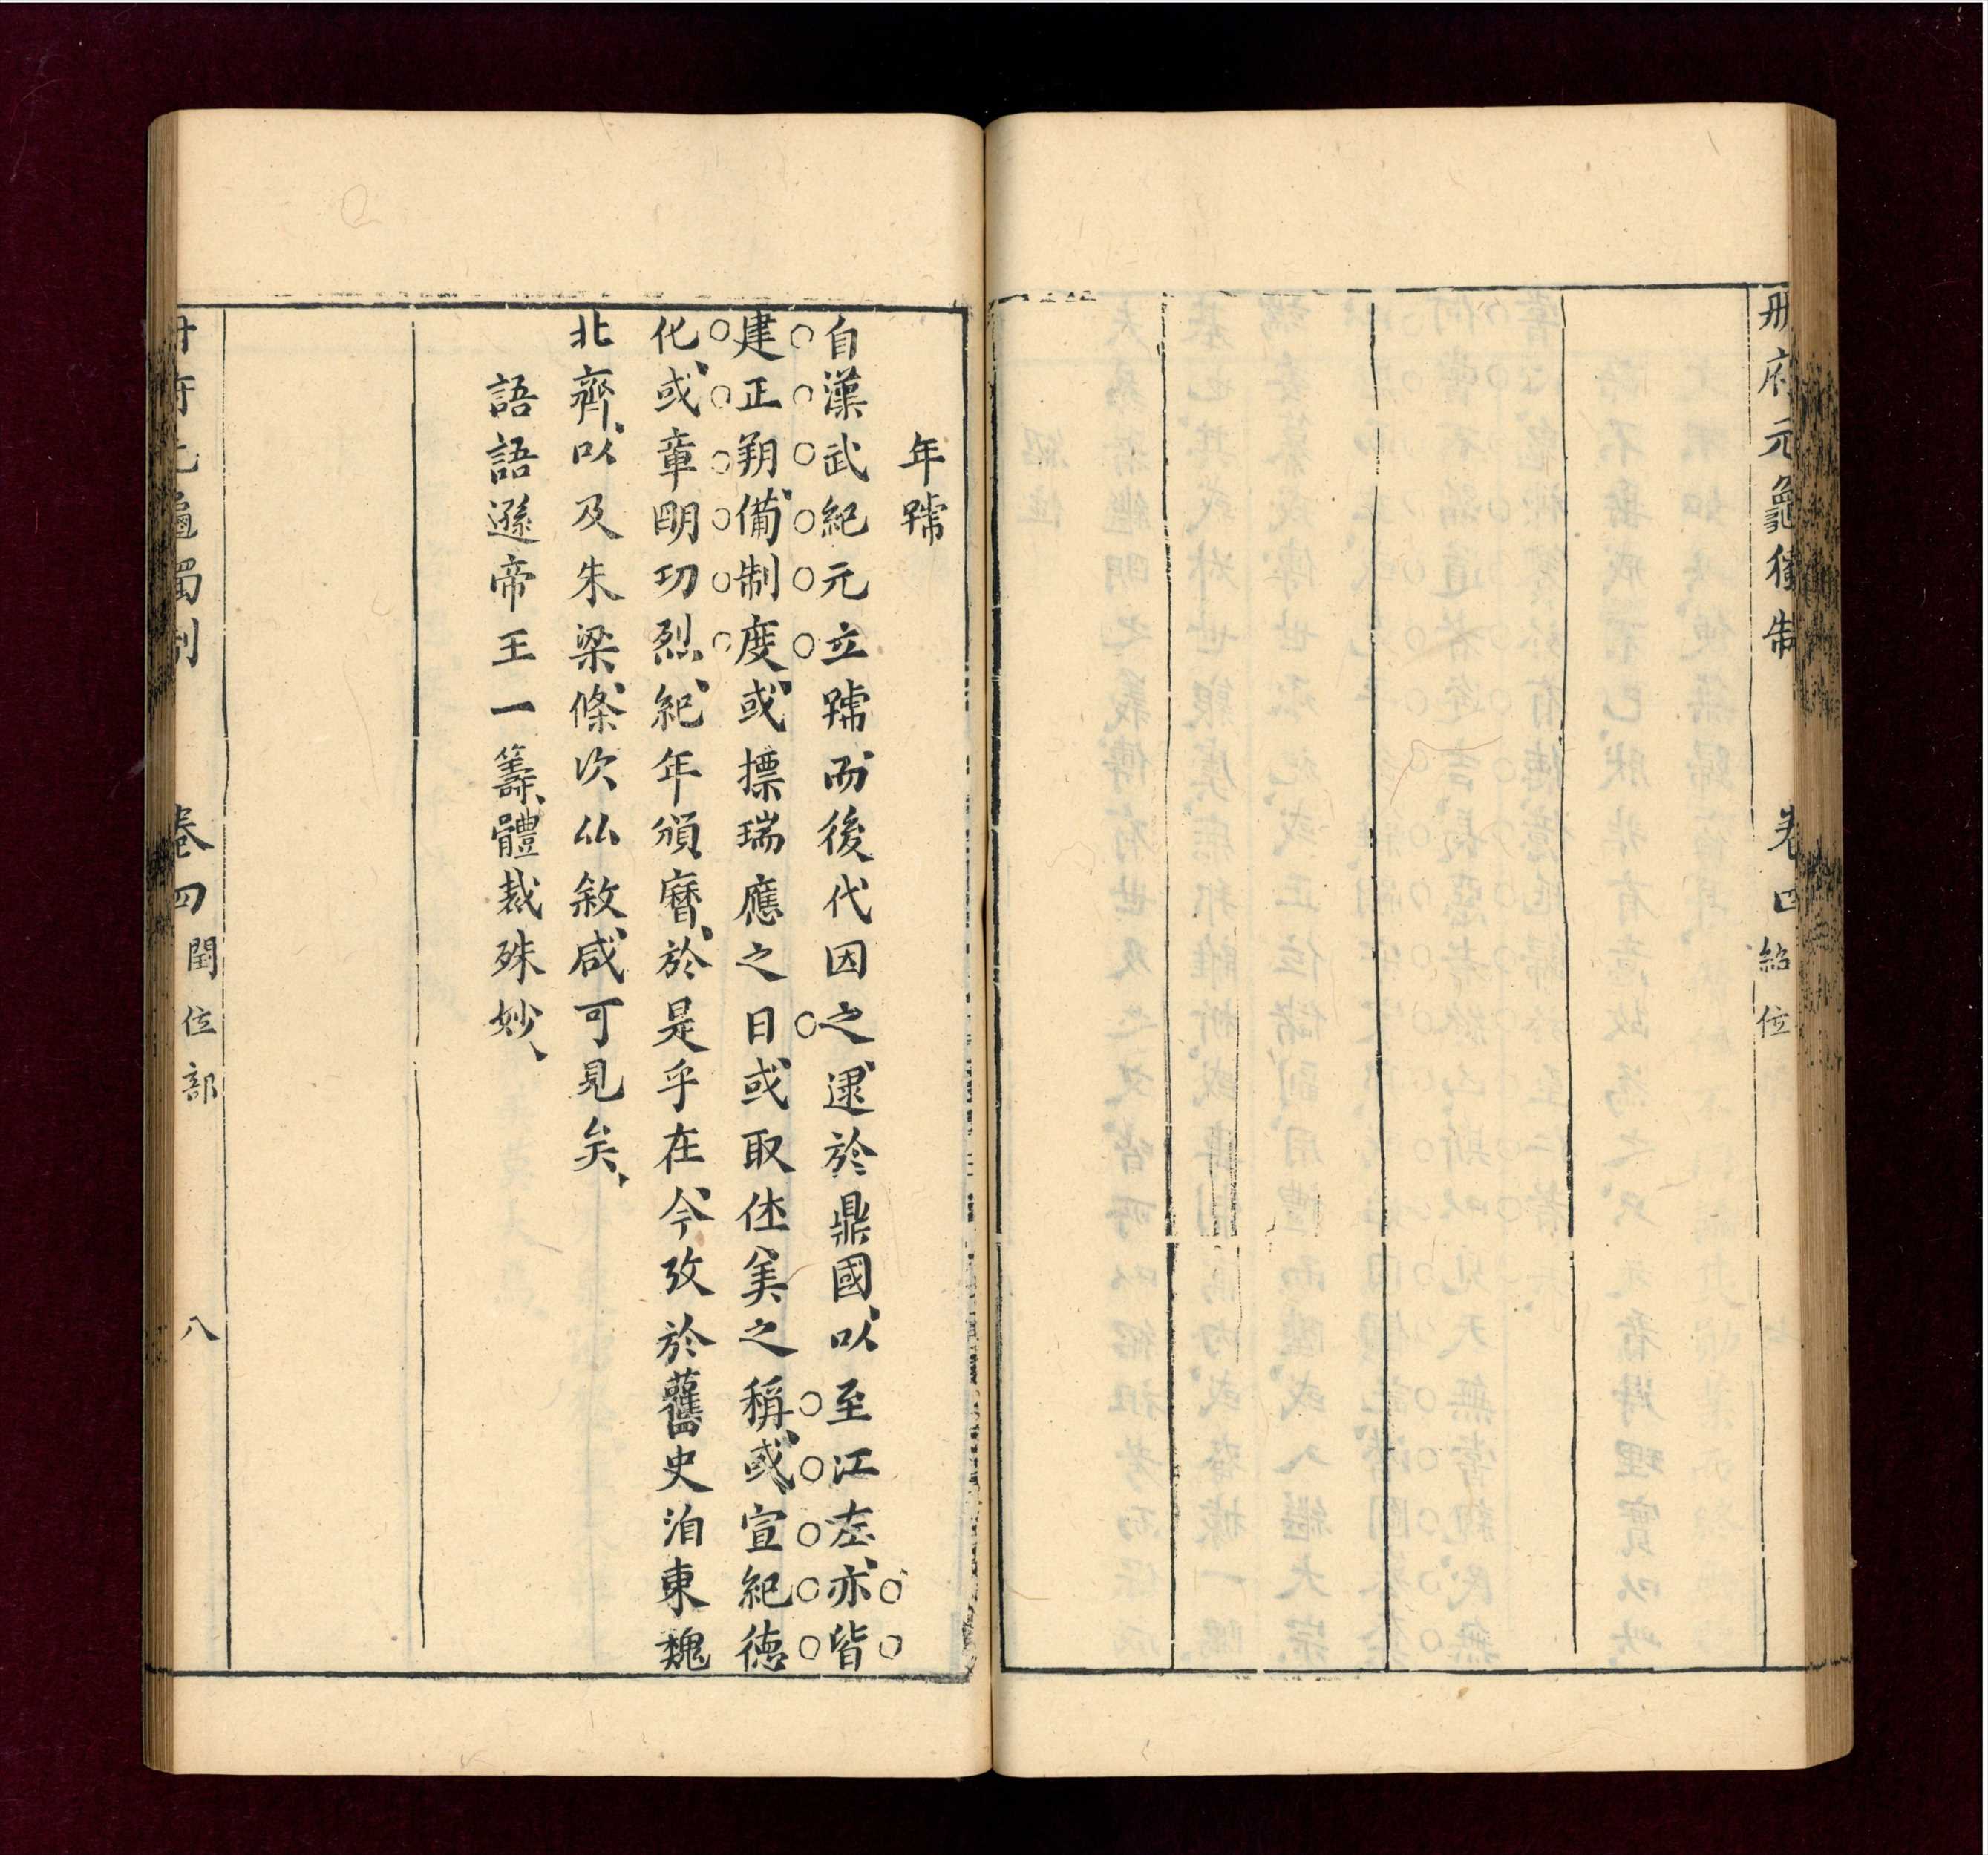 册府元龜獨制 卷四 紹位
年號
自漢武紀元立號而後代因之逮於鼎國以至江左亦皆
建正朔備制度或摽瑞應之日或取佳美之稱或宣紀德
化或章明功烈紀年頒曆於是乎在今攷於舊史洎東魏
北齊以及朱梁條次仏敘咸可見矣
語語遜帝王一籌體裁殊妙
册府元龜獨制 卷四 閏位部 八